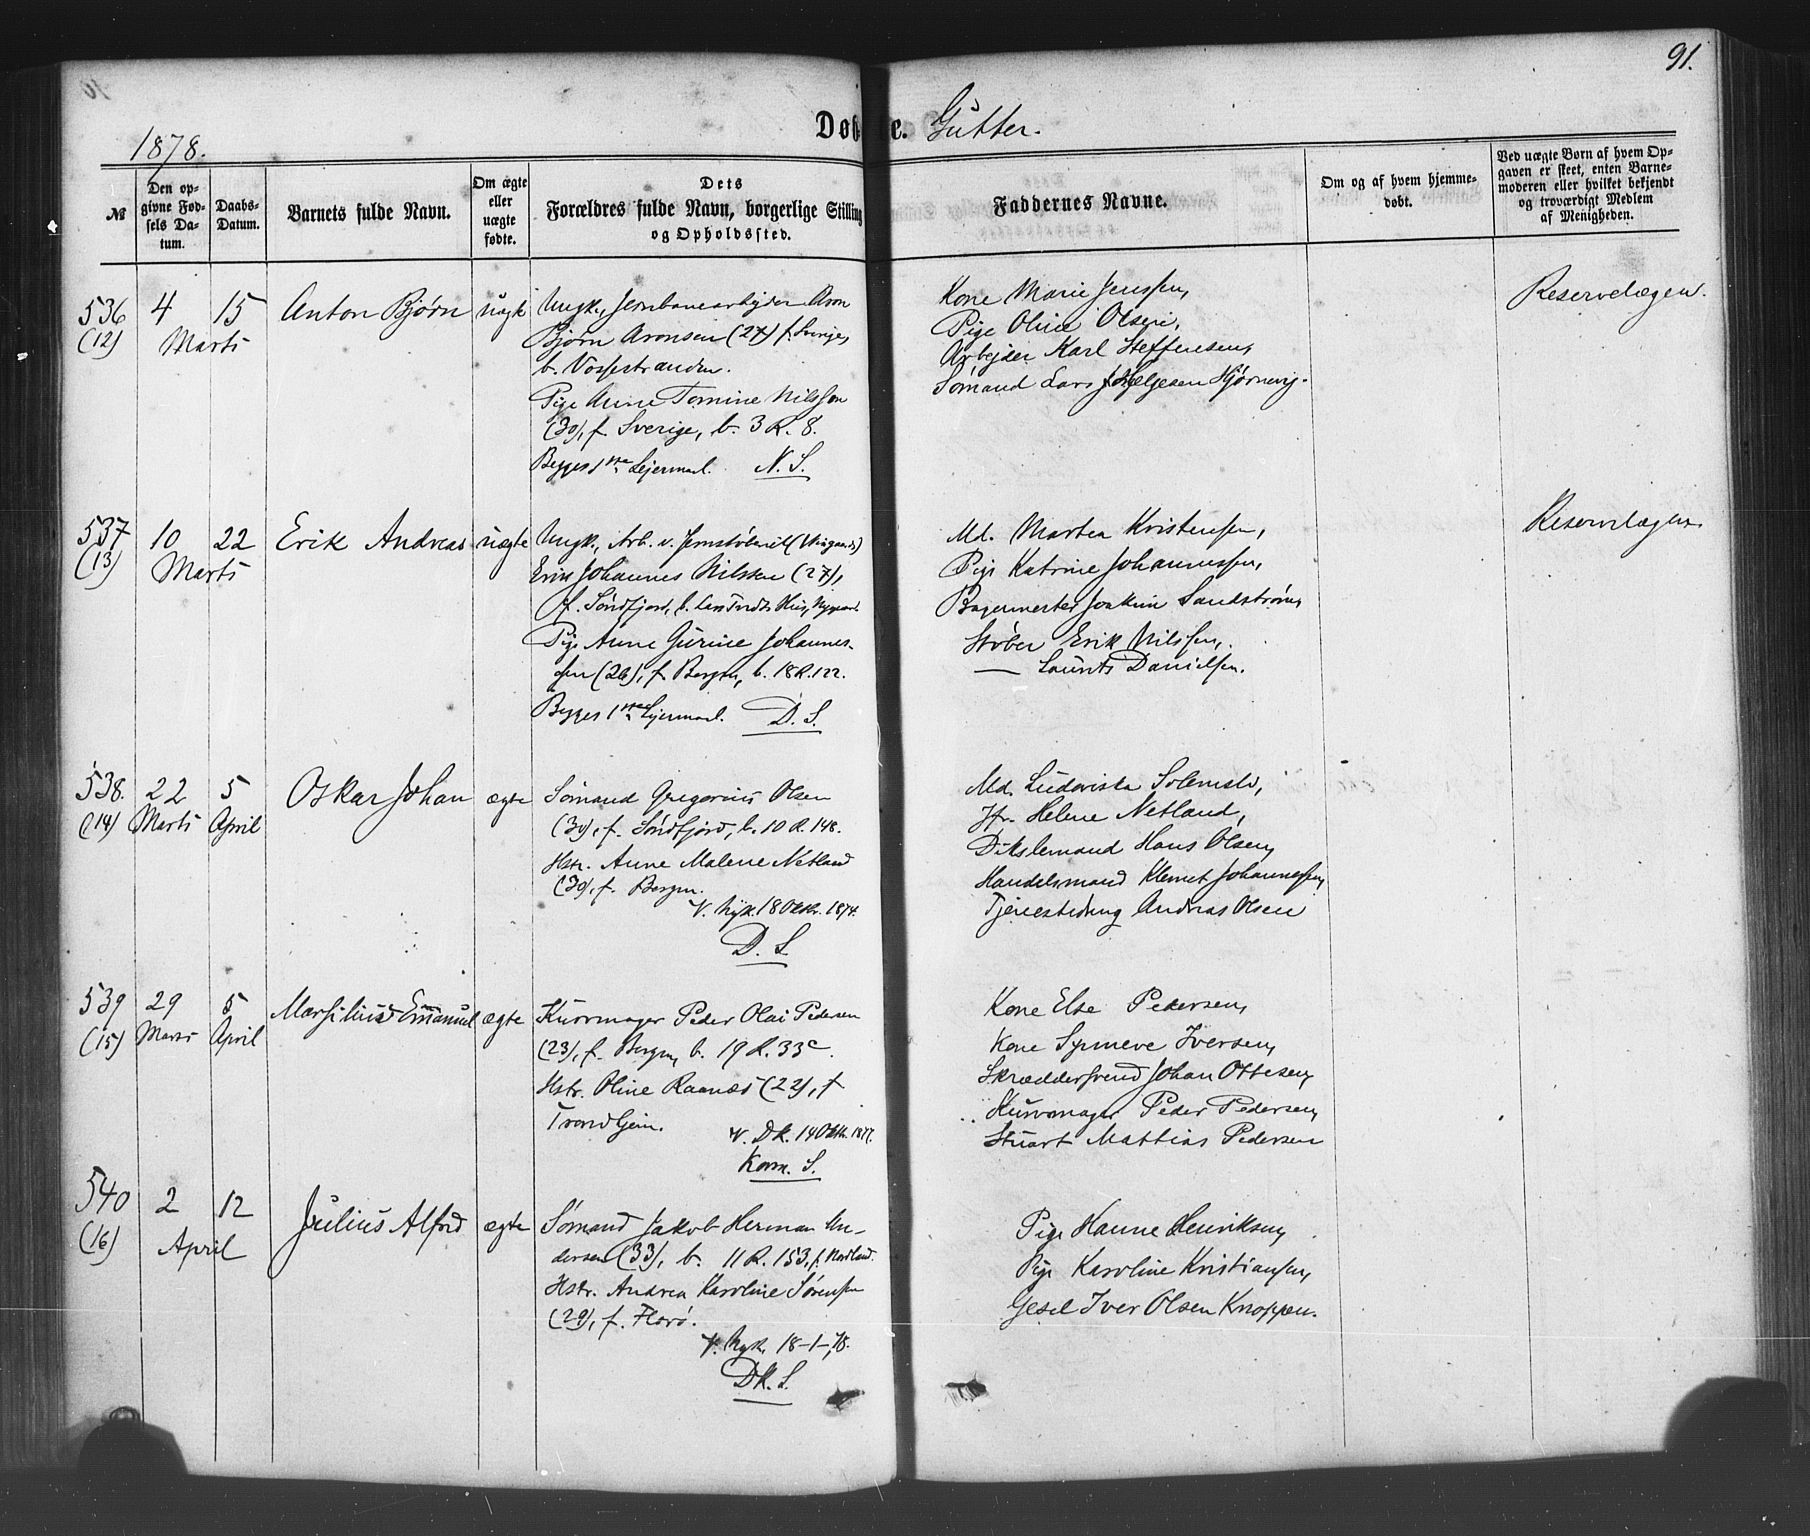 91.
1878.
Døbte. Gutter.
№
Den opgivne Fødsels Datum.
Daabs-Datum.
Barnets fulde Navn.
Om ægte eller uægte fødte.
Dets Forældres fulde Navn, borgerlige Stilling og Opholdssted.
Faddernes Navne.
Om og af hvem hjemmedøbt.
Ved uægte Børn af hvem Opgaven er skeet, enten Barnemoderen eller hvilket bekjendt og troværdigt Medlem af Menigheden.
536
(12)
4 15
Marts
Anton Bjørn
uægte
Ungk., Jernbanearbejder Aron
Bjørn Aronsen (27) f. Sverige,
b. Vossestranden.
Pige Anne Tomine Nilsson
(30), f. Sverige, b. 3 R. 8.
Begges 1ste Lejermaal. N. S.
Kone Marie Jenssen,
Pige Oline Olsen,
Arbejder Karl Steffensen,
Sømand Lars Helgesen Hjørnevig.
Reservelægen.
537
(13)
10 22
Marts
Erik Andreas
uægte
Ungk., Arb. v. Jernstøberiet
Erik Johannes Nilssen (27),
f. Søndfjord, b. Hus, Nygaard
Pige Anne Gurine Johannes-
sen (26), f. Bergen, b. 18 R. 122.
Begges 1ste Lejermaal. D. S.
Md. Martea Kristensen,
Pige Katrine Johannessen,
Bagermester Joakim Sandstrøm,
Støber Erik Nilssen,
— Laurits Danielsen.
Reservelægen
538.
(14)
22 5
Marts April
Oskar Johan
ægte
Sømand Gregorius Olsen
(30), f. Søndfjord, b. 10 R. 148.
Hstr. Anne Malene Netland
(30), f. Bergen.
V. Nyk. 18 Oktbr. 1874.
D. S.
Md. Ludoviska
Jfr. Helene Netland,
Hans Olsen,
Handelsmand Klemet Johannessen,
Andreas Olsen
539
(15)
29 5
Marts April
Marsilius Emanuel
ægte
Kurvmager Peder Olai Pedersen
(23), f. Bergen, b. 19 R. 33c.
Hstr. Oline Raanæs (22), f.
Trondhjem.
V. Dk. 14 Oktb. 1877.
Korsk. S.
Kone Else Pedersen,
Kone Synneve Iversen,
Skræddersvend Johan Ottesen,
Kurvmager Peder Pedersen,
Stuart Mattias Pedersen
540
(16)
2 12
April
Julius Alfred
ægte
Sømand Jakob Herman An-
dersen (33), b. 11 R. 153, f. Nordland.
Hstr. Andrea Karoline Sørensen
(29), f. Florø.
V. Nyk. 18-1-78.
Dk. S.
Pige Hanne Henriksen,
Pige Karoline Kristiansen,
Gesel Iver Olsen Knappen.